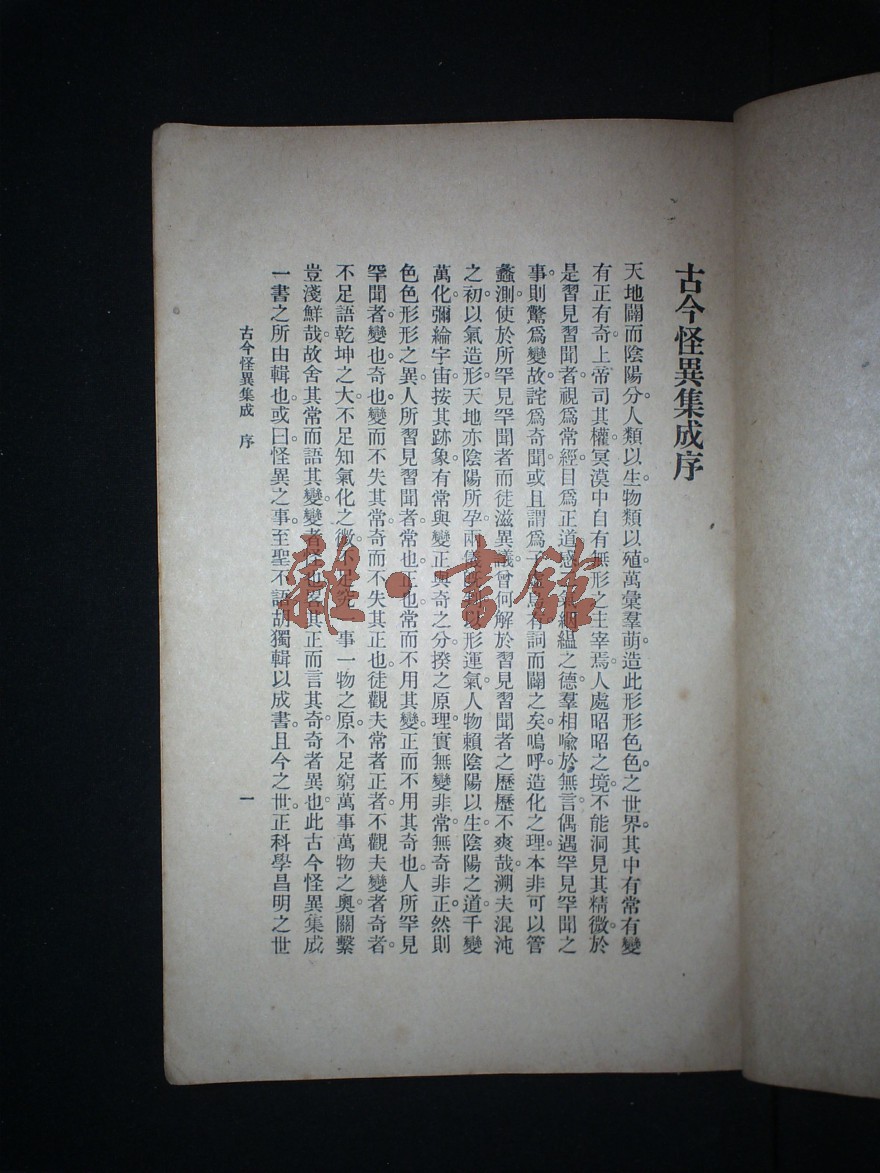 古今怪異集成序
天地闢而陰陽分。人類以生。物類以殖。萬彙羣萌。造此形形色色之世界。其中有常有變
有正有奇。上帝司其權。冥漠中自有無形之主宰焉。人處昭昭之境。不能洞見其精微。於
是習見習聞者。視爲常經。目爲正道。感絪縕之德。羣相喩於無言。偶遇罕見罕聞之
事。則驚爲變故。詫爲奇聞。或且謂爲子虛烏有。詞而闢之矣。嗚呼。造化之理。本非可以管
蠡測。使於所罕見罕聞者而徒滋異議。曾何解於習見習聞者之歷歷不爽哉。溯夫混沌
之初。以氣造形。天地亦陰陽所孕。兩儀以形運氣。人物賴陰陽以生。陰陽之道。千變
萬化。彌綸宇宙。按其跡象。有常與變正與奇之分。揆之原理。實無變非常。無奇非正。然則
色色形形之異。人所習見習聞者。常也。正也。常而不用其變。正而不用其奇也。人所罕見
罕聞者。變也。奇也。變而不失其常。奇而不失其正也。徒觀夫常者正者。不觀夫變者奇者。
不足語乾坤之大。不足知氣化之微。不足究事一物之原。不足窮萬事萬物之奧。關繫
豈淺鮮哉。故舍其常而語其變。變者怪也。畧其正而言其奇。奇者異也。此古今怪異集成
一書之所由輯也。或曰。怪異之事。至聖不語。胡獨輯以成書。且今之世。正科學昌明之世
古今怪異集成 序
一
雜·書館